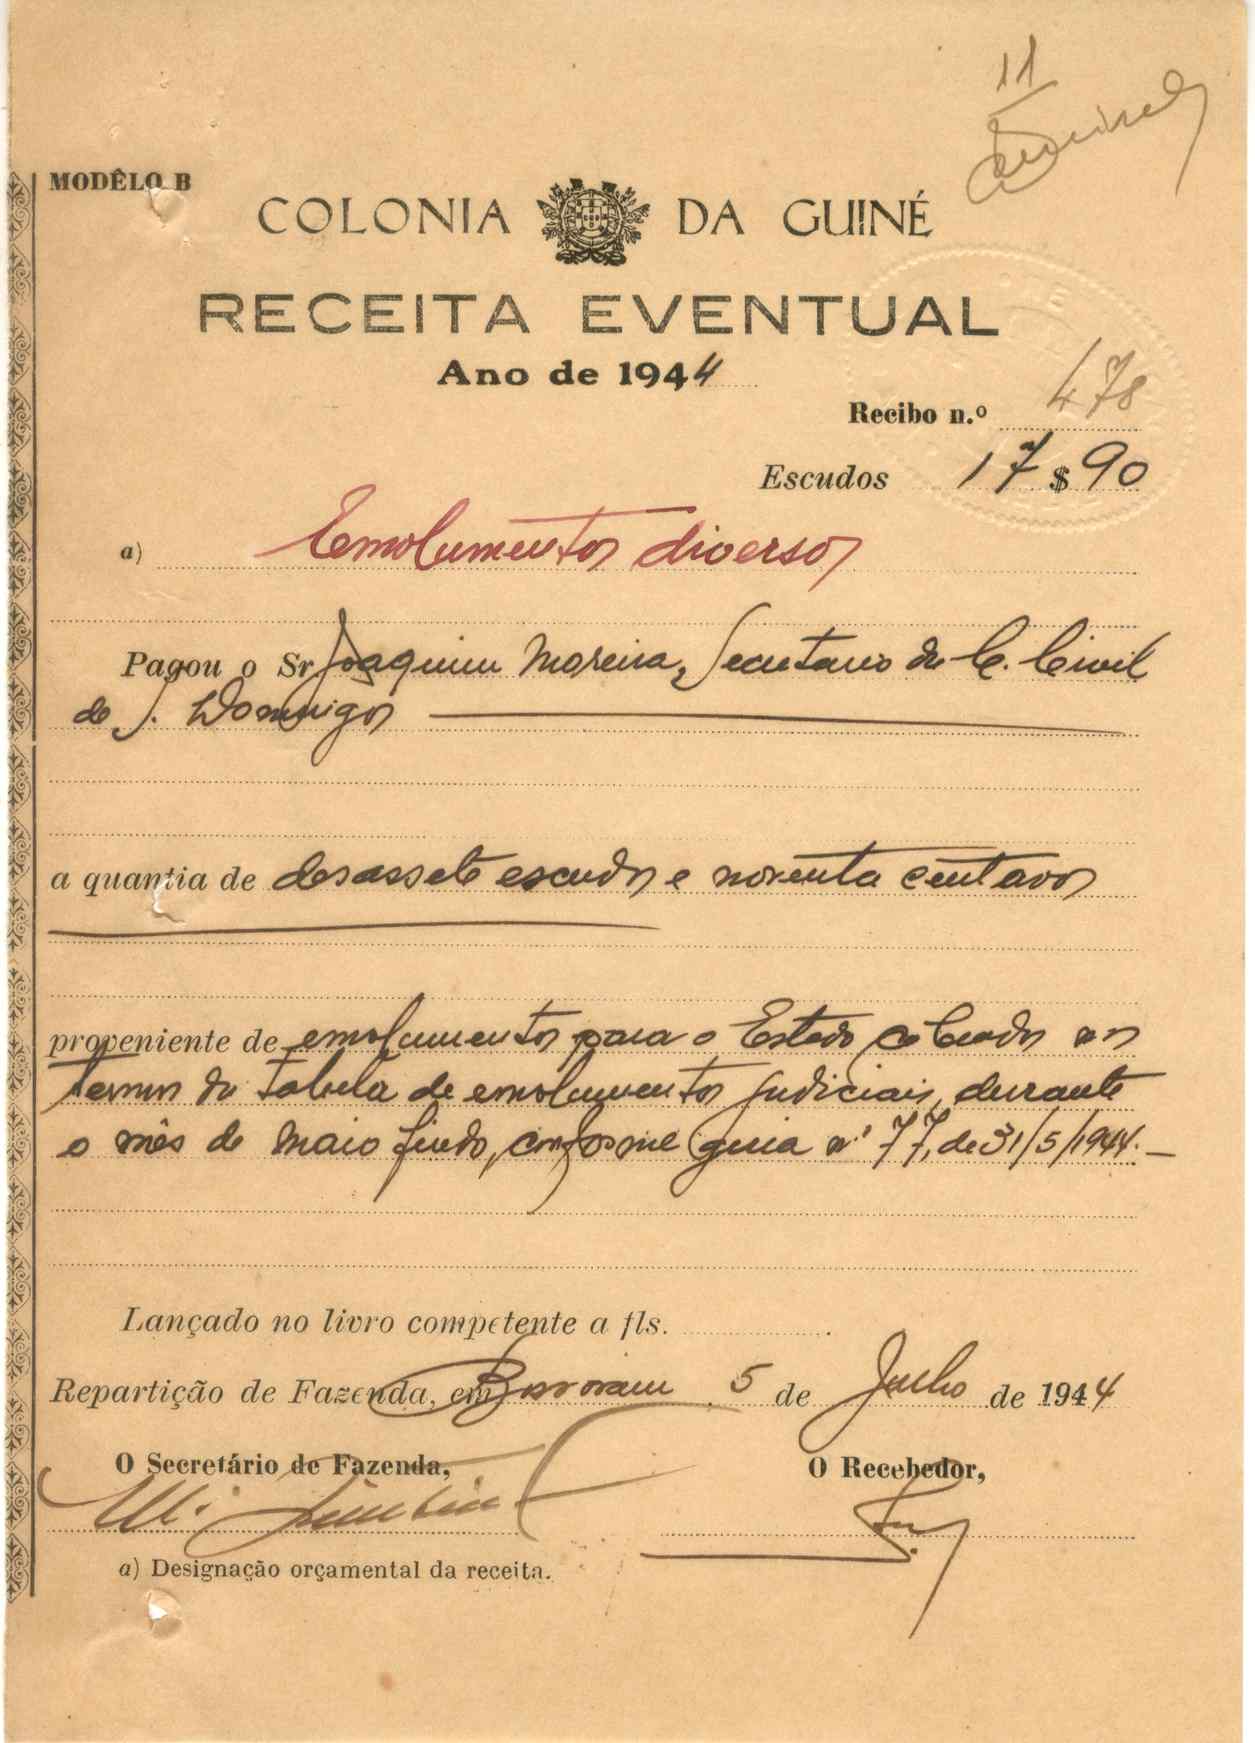 11
MODÊLO B
COLONIA DA GUINÉ
RECEITA EVENTUAL
Ano de 1944
Recibo n.º 478
Escudos 17 $ 90
a) Emolumentos diversos
Pagou o Sr. Joaquim Moreira, Secretario da C. Civil
de S. Domingos
a quantia de desassete escudos e noventa centavos
proveniente de emolumentos para o Estado cobrados nos
termos da tabela de emolumentos judiciais, durante
o mês de Maio findo, conforme guia nº 77, de 31/5/1944.—
Lançado no livro competente a fls.
Repartição de Fazenda, em 5 de Julho de 1944
O Secretário de Fazenda,
O Recebedor,
a) Designação orçamental da receita.